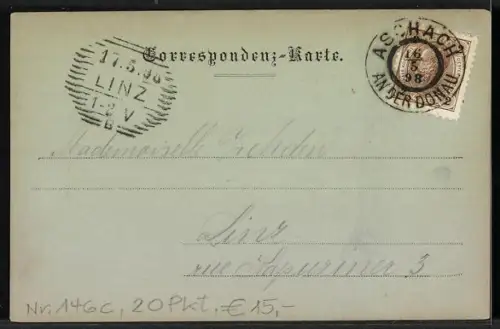 Correspondenz-Karte.
ASCHACH
16
5
98
AN DER DONAU
17.5.98
LINZ
1-2 V
B
Mademoiselle
Linz
rue 3
Nr. 146c, 20 Pkt, € 15,-